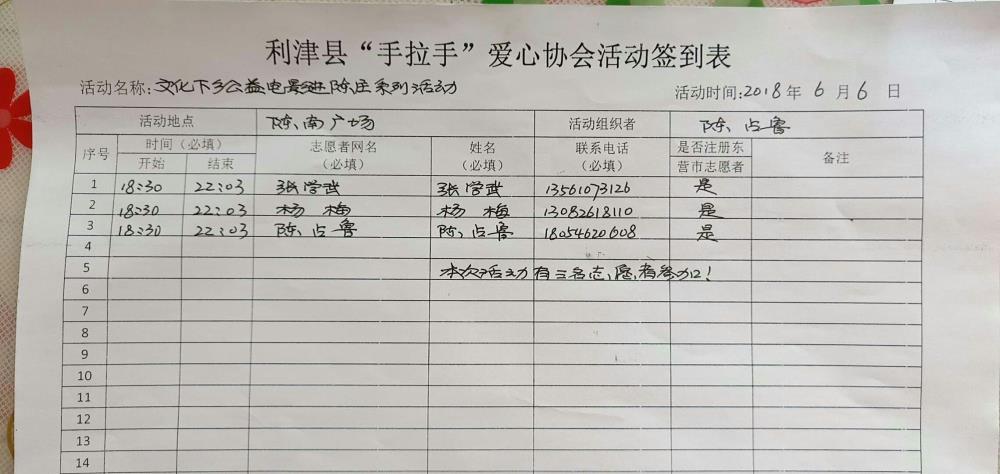 利津县“手拉手”爱心协会活动签到表
活动名称:文化下乡公益电影进陈庄系列活动 活动时间:2018年6月6日
活动地点 陈南广场 活动组织者 陈占鲁
序号 时间（必填） 志愿者网名 姓名 联系电话 是否注册东 备注
开始 结束 （必填） （必填） （必填） 营市志愿者
1 18:30 22:03 张学武 张学武 13561073126 是
2 18:30 22:03 杨梅 杨梅 13082618110 是
3 18:30 22:03 陈占鲁 陈占鲁 18054620608 是
4
5 本次活动有三名志愿者参加!
6
7
8
9
10
11
12
13
14